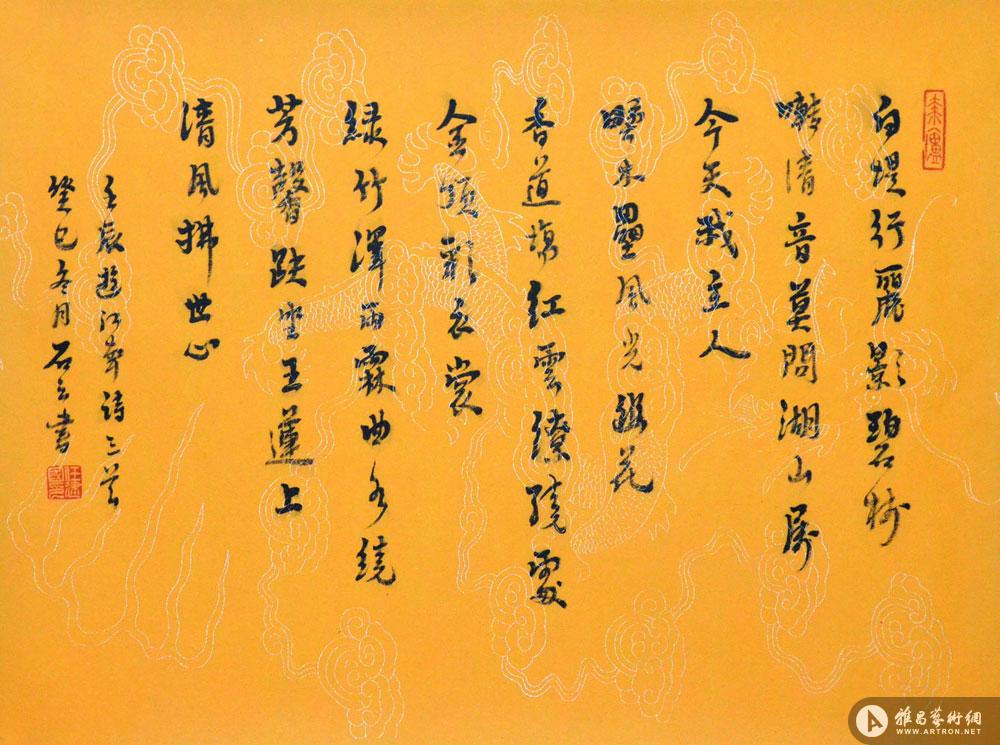 白堤行麗影碧樹
囀清音莫問湖山屬
今天我主人
疊水壘風光幽花
香道場紅雲繚繞處
金頂彩衣裳
綠竹澤霖曲水繞
芳馨趺坐玉蓮上
清風拂世心
壬辰遊江華詩三首
癸巳冬月石立書
雅昌藝術網
WWW.ARTRON.NET